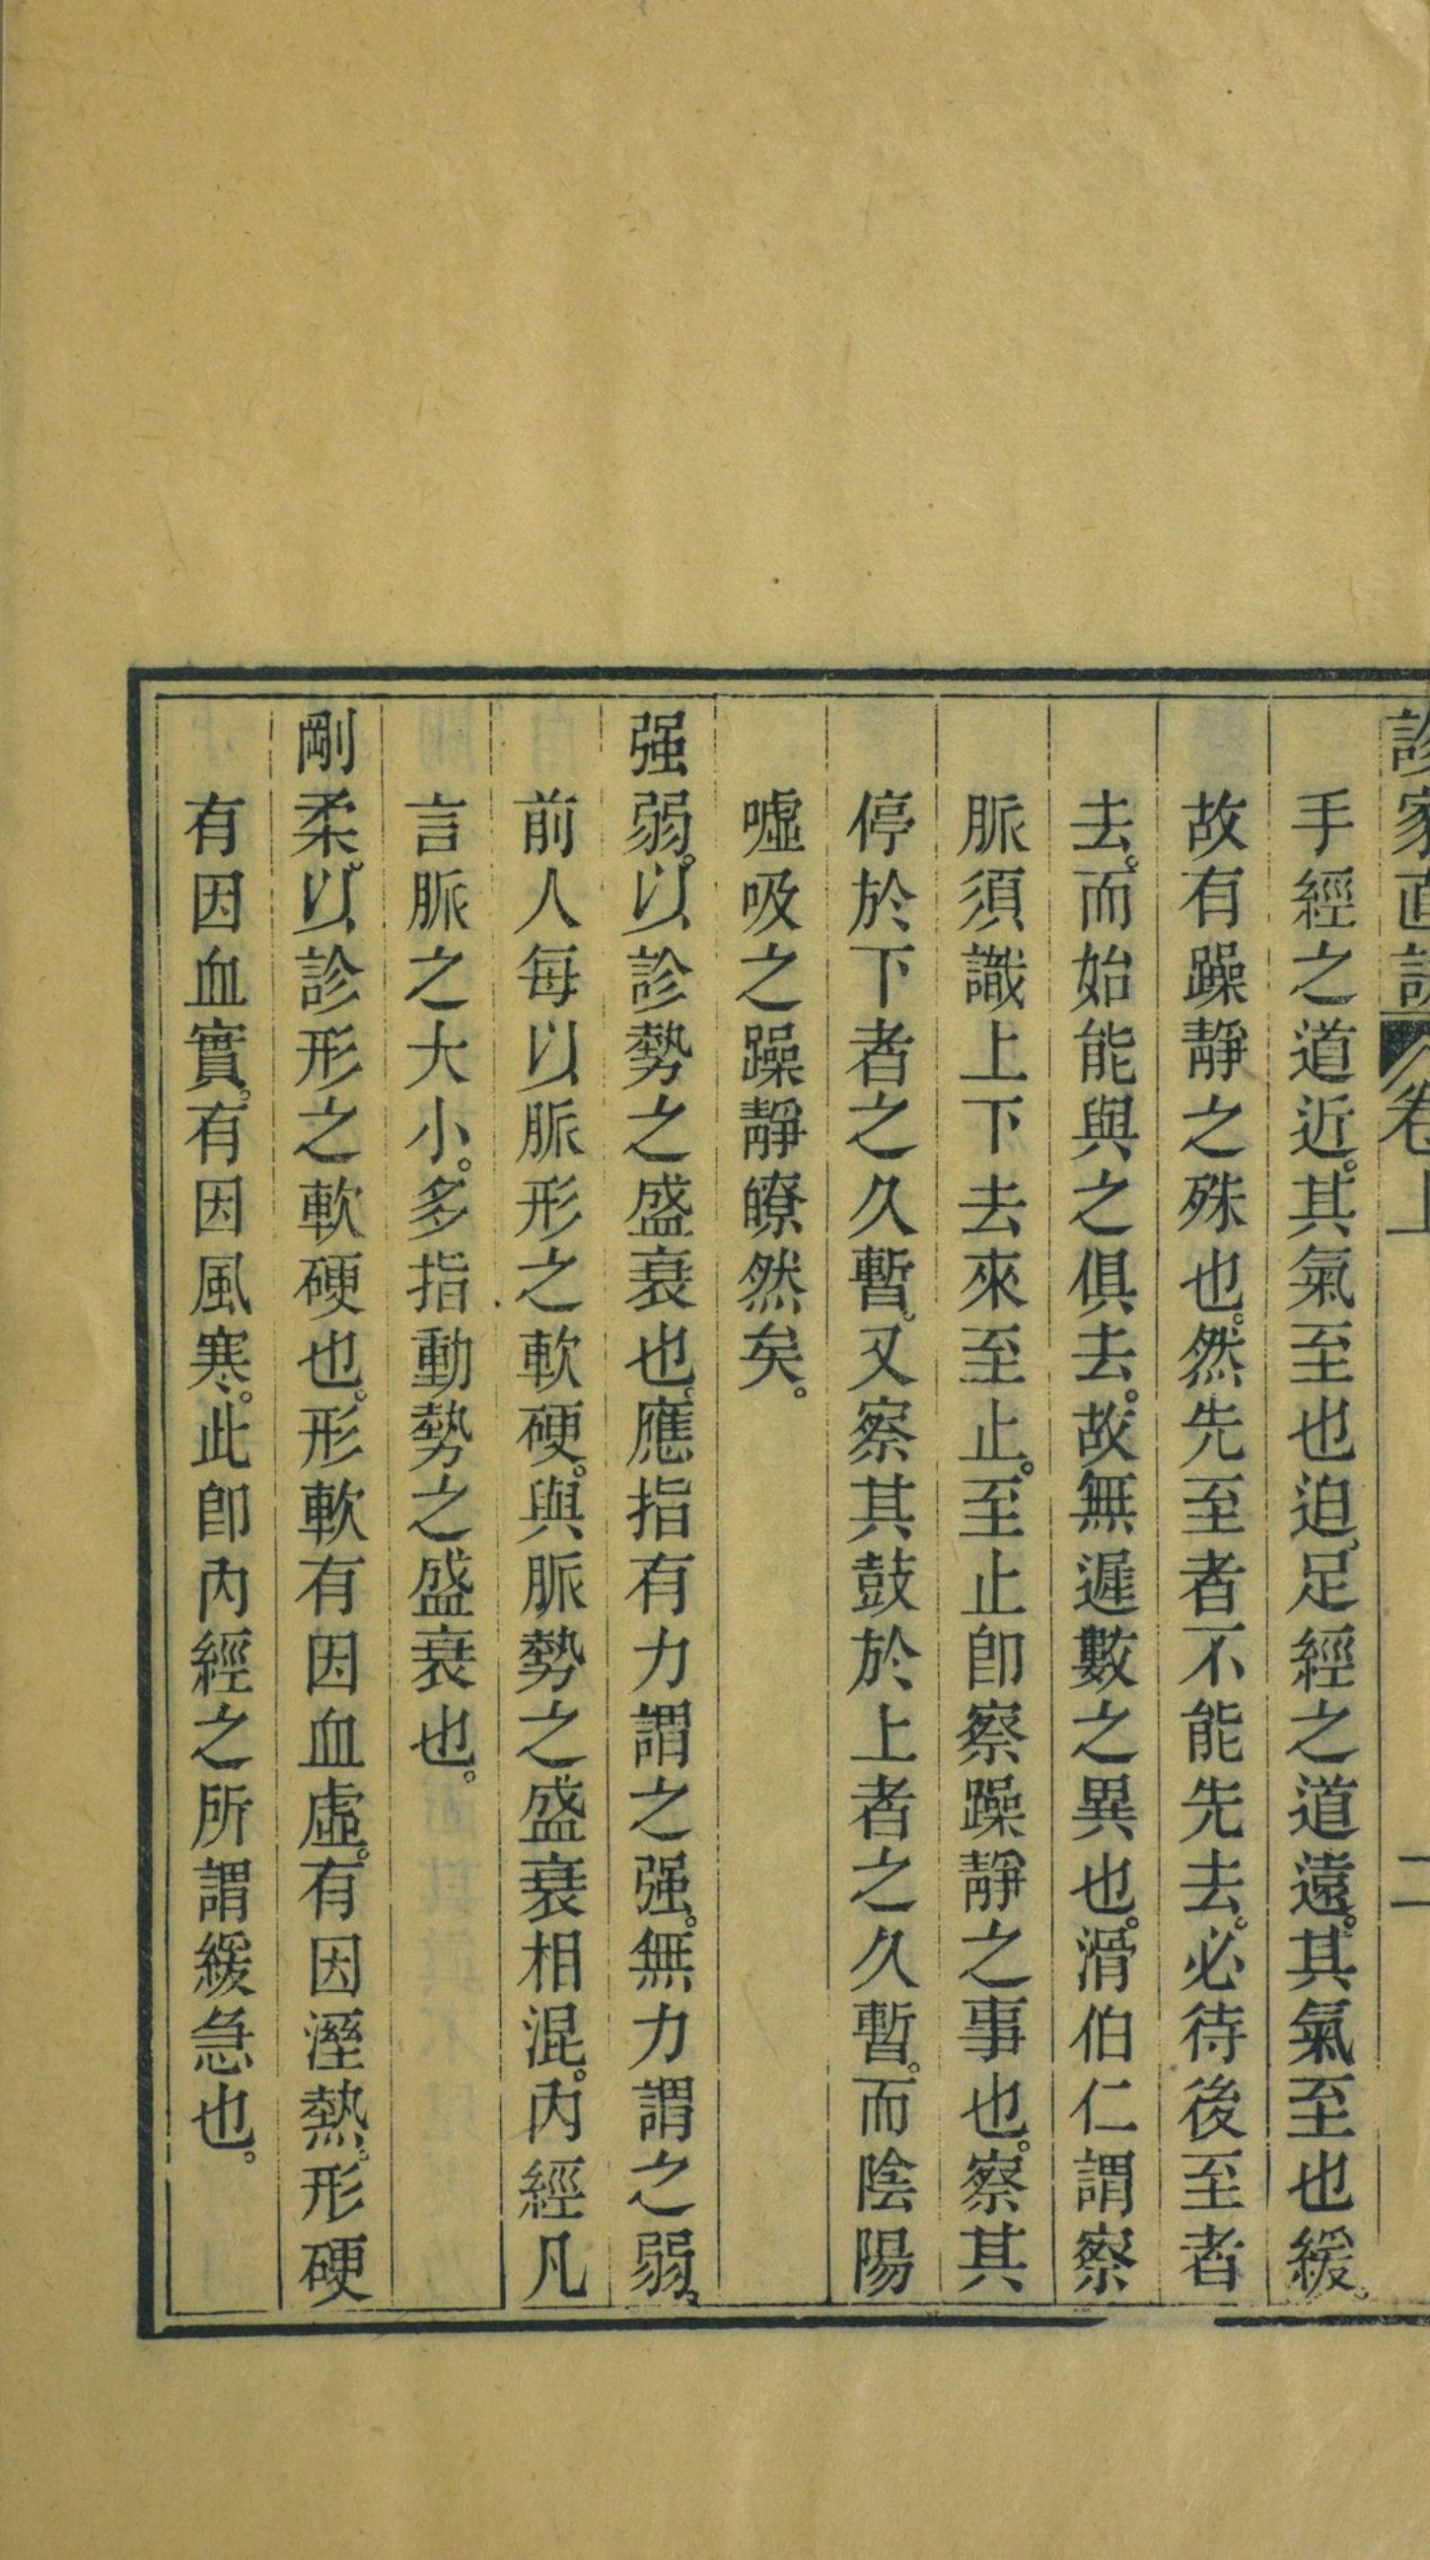 診家直訣 卷上 二
手經之道近。其氣至也迫。足經之道遠。其氣至也緩。
故有躁靜之殊也。然先至者不能先去。必待後至者
去。而始能與之俱去。故無遲數之異也。滑伯仁謂察
脈須識上下去來至止。至止卽察躁靜之事也。察其
停於下者之久暫。又察其鼓於上者之久暫。而陰陽
噓吸之躁靜瞭然矣。
强弱。以診勢之盛衰也。應指有力謂之强。無力謂之弱。
前人每以脈形之軟硬。與脈勢之盛衰相混。內經凡
言脈之大小。多指動勢之盛衰也。
剛柔。以診形之軟硬也。形軟有因血虛。有因溼熱。形硬
有因血實。有因風寒。此卽內經之所謂緩急也。